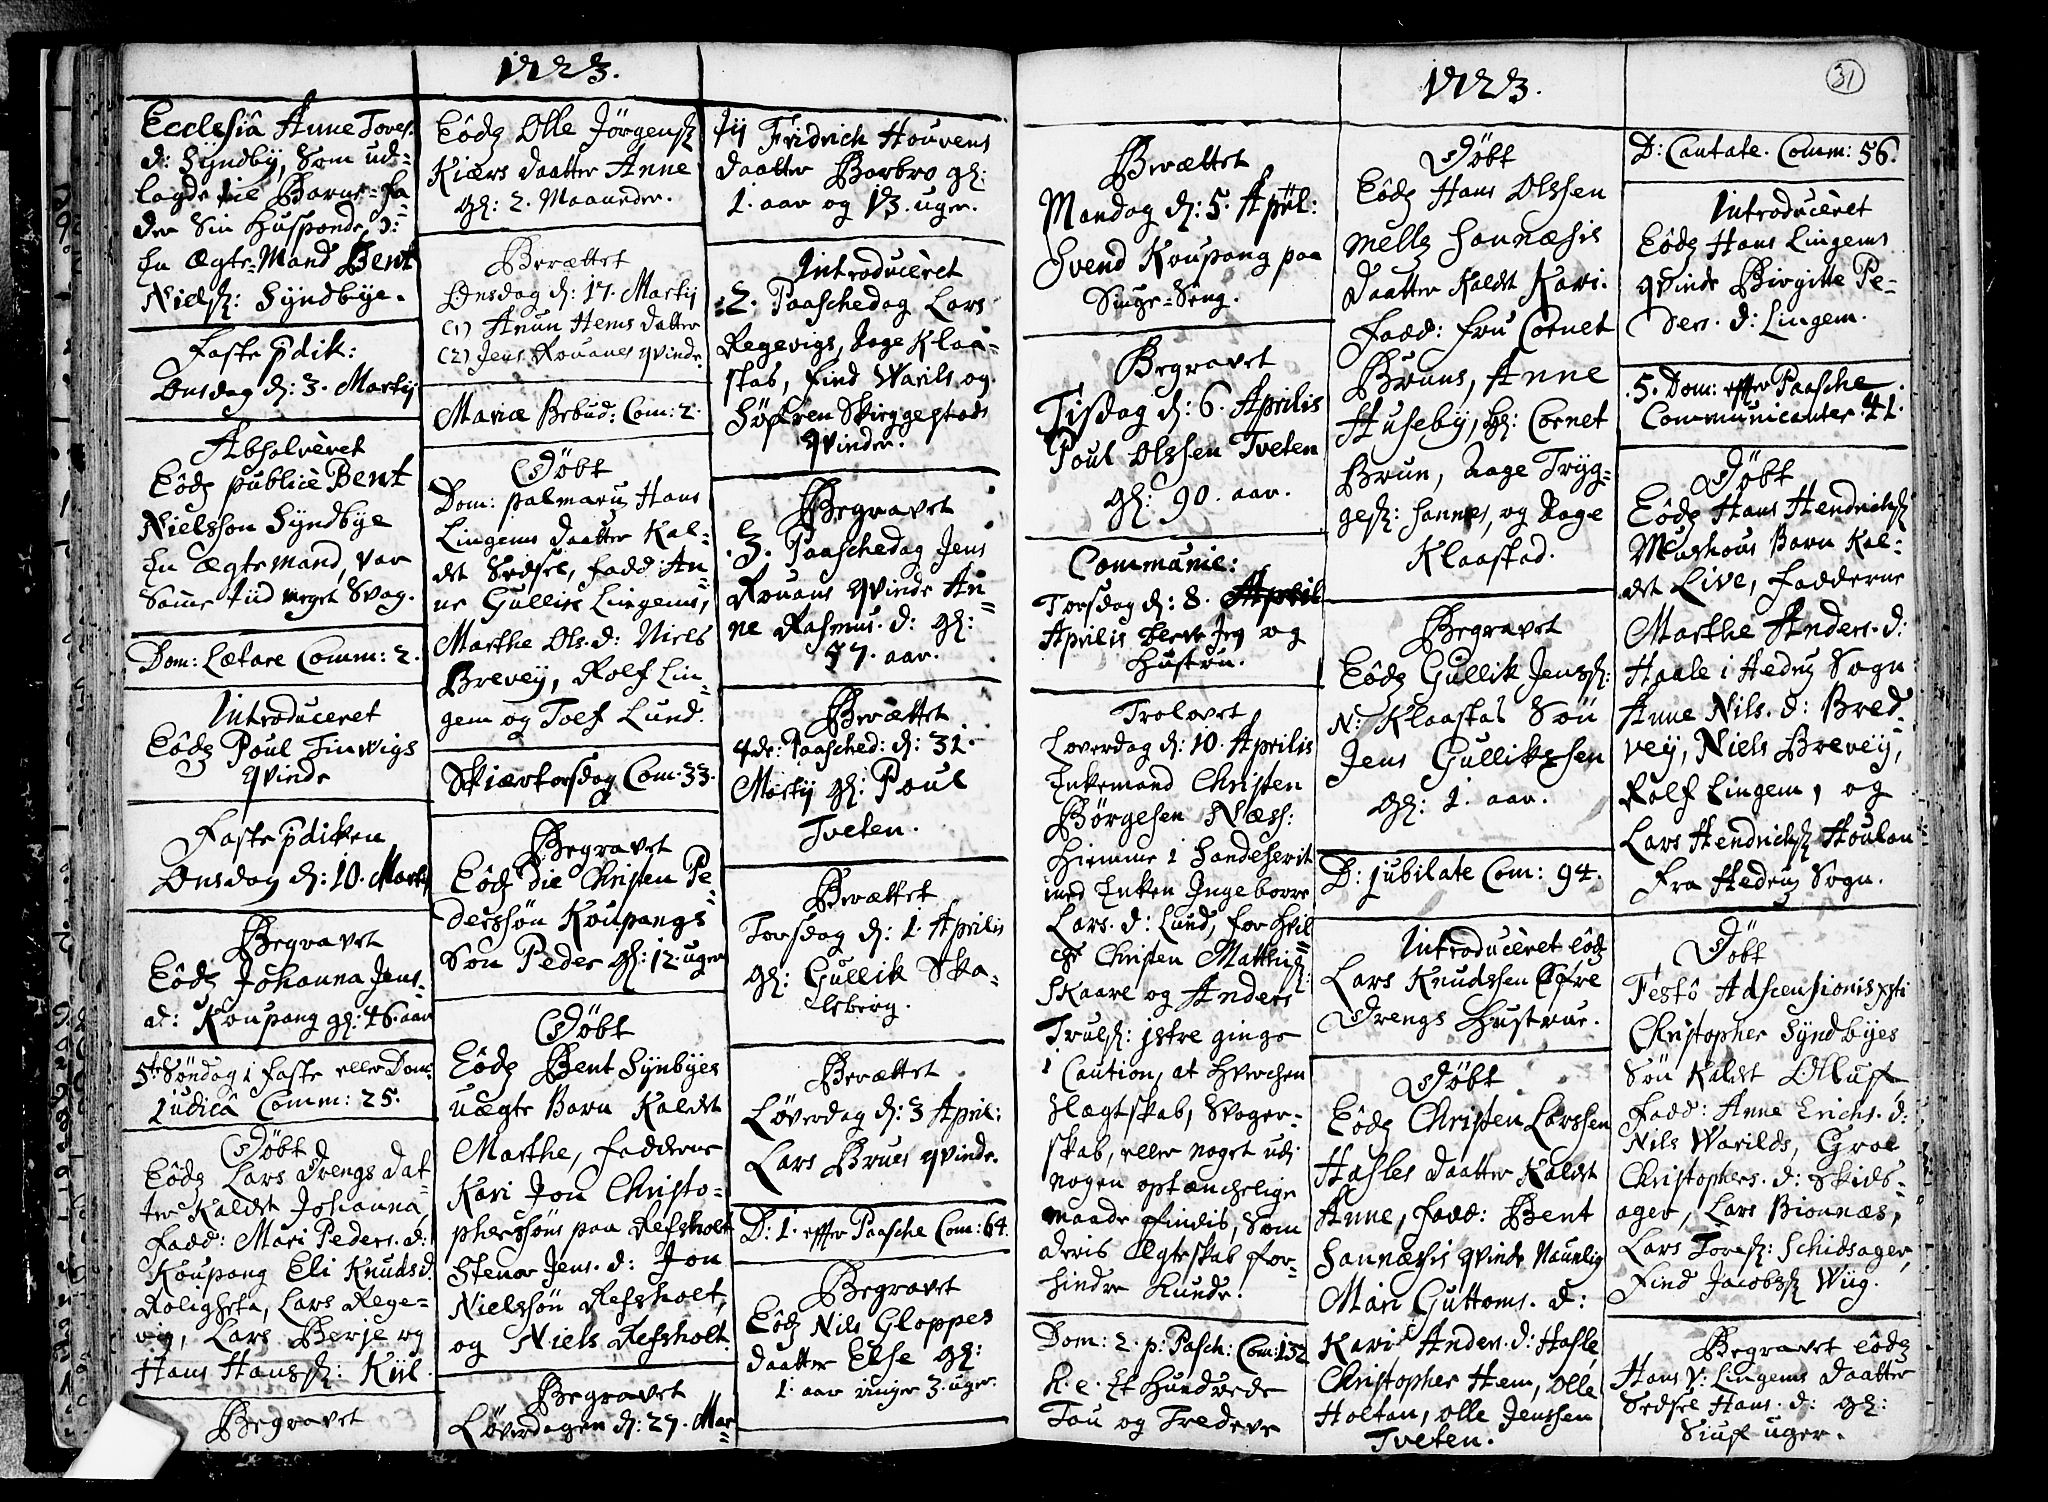 1723.
Ecclesiâ Anne Tores.
d: Syndby, Som ud-
lagde til Barne-fa-
der Sin Husponde, ɔ:
En Ægte-Mand Bent
Niels: Syndbye.
Faste pdik:
Onsdag d: 3. Martij
Absolvèret
Eôdẽ publicè Bent
Nielssøn Syndbye
En Ægte mand, var
Samme tiid meget Svag.
Dom: Lætare Comm: 2.
Introduceret
Eôdẽ Poul Finwigs
qvinde
Faste pdiken
Onsdag d: 10. Martij
Begravet
Eôdẽ Johanna Jens-
d: Koupang gl: 46. aar
5te Søndag i Faste eller Dom:
Judicâ Comm: 25.
Døbt
Eôdẽ Lars Drengs Dat-
ter Kaldet Johanna,
Fadd: Mari Peders. d:
Koupang Eli Knuds d.
Roligheta, Lars Rege-
vig, Lars Berje og
Hans Hanss: Kiil.
Begravet
Eôdẽ Olle Jörgens:
Kiærs Daatter Anne
gl: 2. Maaneder.
Berættet
Onsdag d: 17. Martij
(1) Anun Hems datter
(2) Jens Rouanes qvinde
Mariæ Bebud: Com: 2.
Døbt
Dom: palmarũ Hans
Lingems Daatter Kal-
det Sidsel, Fadd: An-
ne Gullik Lingems,
Marthe Ols. d: Niels
Brevey, Rolf Lin-
gem og Toef Lund.
Skiærtorsdag Com. 33.
Begravet
Eôdẽ die Christen Pe-
derssøn Koupangs
Søn Peder gl: 12. uger
Døbt
Eôdẽ Bent Synbyes
uægte Barn Kaldet
Marthe, Fadderne
Kari Jon Christo-
pherssøns paa Refsholt
Stenor Jens. d: Jon
Nielssøn Refsholt,
og Niels Refsholt.
Begravet
Løverdagen d: 27. Mar-
tij Fridrich Houvens
Daatter Barbro gl:
1. aar og 13. uger.
Introducèret
2. Paaschedag Lars
Regevigs, Aage Klaa-
stad, Find Warils og
Søfren Skieggestads
qvinder.
Begravet
3. Paaschedag Jens
Rouans qvinde An-
ne Rasmus. d: gl:
57. aar.
Berættet
4de: Paasched: d: 31.
Martij gl: Poul
Tveten.
Berættet
Torsdag d: 1. Aprilis
gl: Gullik Ska-
lleberg.
Berættet
Løverdag d: 3 April:
Lars Brues qvinde.
D: 1. effter Paasche Com: 64
Begravet
Eôdẽ Nils Gloppes
Daatter Else gl:
1. aar ringer 3. uger.
1723.
31
Berættet
Mandag d: 5. April:
Svend Koupang paa
Siuge-Seng.
Begravet
Tisdag d: 6. Aprilis
Poul Olssen Tveten
gl: 90. aar.
Communic:
Torsdag d: 8.
Aprilis Jeg og
Hustru.
Trolovet
Loverdag d: 10. Aprilis
Enkemand Christen
Börgesen Næss:
hiemme i Sandeherrit
med Enken Ingeborre
Lars. d: Lund, for hvil
cke Christen Matthis:
Skaare og Anders
Truls: Istre ginge
i Caution, at hverchen
Slægtskab, Svoger-
skab, eller noget udi
nogen optænchelige
maade findis, Som
deris Ægteskab for-
hindre Kunde.
Dom: 2. p: Pasch: Com: 132
h. e. Et Hundrede
Tou og Tredeve
Døbt
Eôdẽ Hans Olssen
mellẽ Sannæsis
Daatter Kaldet Kari.
Fadd: Fru Cornet
Bruns, Anne
Huseby, Hr: Cornet
Brun, Aage Tryg-
ges: Sannes, og Aage
Klaastad.
Begravet
Eôdẽ Gullik Jenss:
N: Klaastas Søn
Jens Gullikssen
gl: 1. aar.
D: Jubilate Com: 94.
Introducèret eôdẽ
Lars Knudssen Øfre
Drengs Hustrue.
Døbt
Eôdẽ Christen Larssen
Hasles Daatter Kaldet
Anne, Fadd: Bent
Sannæsis qvinde Naunlig
Mari Guttorms. d:
Kari Anders. d: Hasle,
Christopher Hem, Olle
Holtan, Olle Jenssen
Tveten.
D: Cantate. Comm: 56.
Introducèret
Eôdẽ Hans Lingems
qvinde Birgitte Pe-
ders. d: Lingem.
5. Dom: effter Paasche
Communicanter 41.
Døbt
Eôdẽ Hans Hendrichs:
Mughous Barn Kal-
det Live, Fadderne
Marthe Anders. d:
Haale i Hedrũ Sogn
Anne Nils. d: Bred-
vey, Niels Brevey,
Rolf Lingem, og
Lars Hendrichs: Houlan
Fra Hedrũ Sogn.
Døbt
Festô Adscensionis xsti
Christopher Syndbyes
Søn Kaldet Olluf
Fadd: Anne Erichs. d:
Nils Warilds, Groe
Christophers. d: Skids-
ager, Lars Bionnæs,
Lars Tores: Schidsager,
Find Jacobs: Wiig.
Begravet eôdẽ
Hans V: Lingems Daatter
Sidsel Hans. d: gl:
Siuf uger.